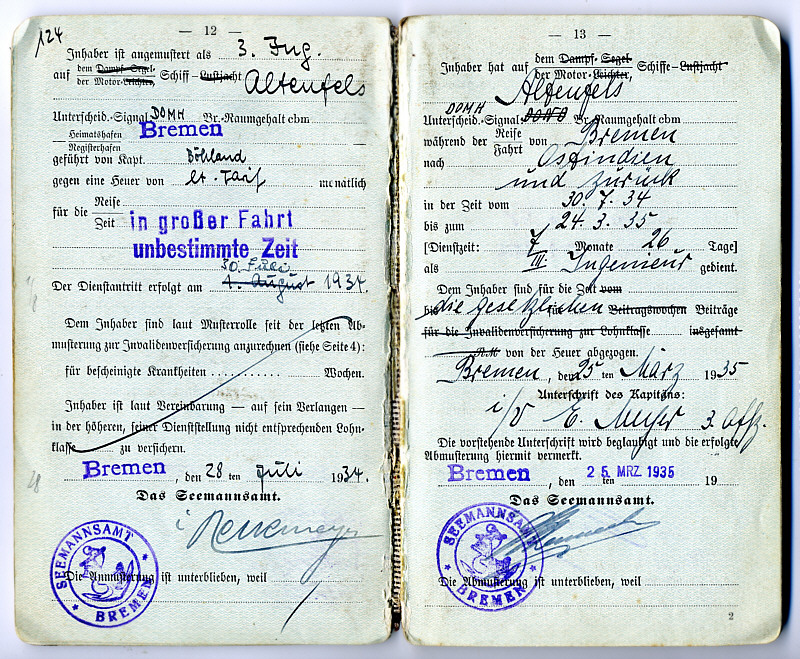 124
— 12 —
Inhaber ist angemustert als 3. Ing.
auf dem Dampf-Segel- Schiff-Lustjacht Altenfels
der Motor-Leichter,
Unterscheid.-Signal DOMH Br.-Raumgehalt cbm
Heimatshafen Bremen
Registerhafen
geführt von Kapt. Böhland
gegen eine Heuer von lt. Tarif monatlich
für die Reise
Zeit in großer Fahrt
unbestimmte Zeit
30. Juli
Der Dienstantritt erfolgt am 1. August 1934.
Dem Inhaber sind laut Musterrolle seit der letzten Ab-
musterung zur Invalidenversicherung anzurechnen (siehe Seite 4):
für bescheinigte Krankheiten . . . . . . . . . . Wochen.
Inhaber ist laut Vereinbarung — auf sein Verlangen —
in der höheren, seiner Dienststellung nicht entsprechenden Lohn-
klasse zu versichern.
Bremen, den 28 ten Juli 1934.
Das Seemannsamt.
SEEMANNSAMT
BREMEN
Die Anmusterung ist unterblieben, weil
— 13 —
Inhaber hat auf dem Dampf- Segel- Schiffe-Lustjacht
der Motor-Leichter,
Altenfels
DOMH
Unterscheid.-Signal Br.-Raumgehalt cbm
während der Reise von Bremen
Fahrt
nach Ostindien
und zurück
in der Zeit vom 30. 7. 34
bis zum 24. 3. 35
[Dienstzeit: 7 Monate 26 Tage]
als III. Ingenieur gedient.
Dem Inhaber sind für die Zeit vom
bis die gesetzlichen für Beitragswochen Beiträge
für die Invalidenversicherung zur Lohnklasse insgesamt
R.M von der Heuer abgezogen.
Bremen, den 25 ten März 1935
Unterschrift des Kapitäns:
i/V E. Meyer 3. Offz.
Die vorstehende Unterschrift wird beglaubigt und die erfolgte
Abmusterung hiermit vermerkt.
Bremen, den 25 MRZ 1935 ten 19
Das Seemannsamt.
SEEMANNSAMT
BREMEN
Die Abmusterung ist unterblieben, weil
2